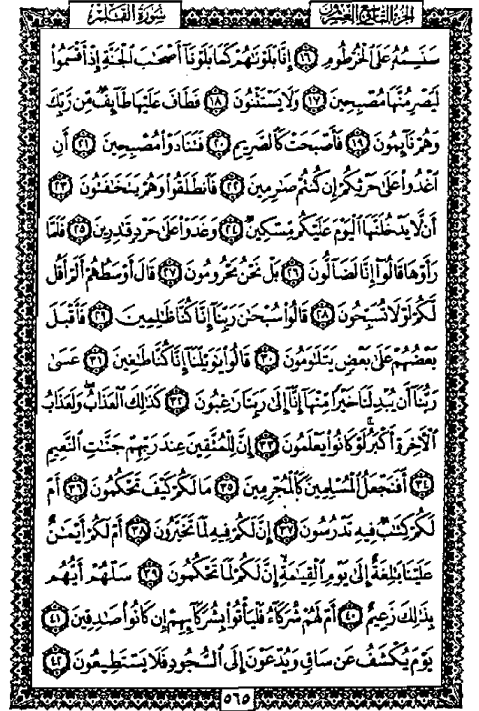 الجزء التاسع والعشرون سورة القلم
سَنَسِمُهُ عَلَى الْخُرْطُومِ ۝١٦ إِنَّا بَلَوْنَاهُمْ كَمَا بَلَوْنَا أَصْحَابَ الْجَنَّةِ إِذْ أَقْسَمُوا
لَيَصْرِمُنَّهَا مُصْبِحِينَ ۝١٧ وَلَا يَسْتَثْنُونَ ۝١٨ فَطَافَ عَلَيْهَا طَائِفٌ مِّن رَّبِّكَ
وَهُمْ نَائِمُونَ ۝١٩ فَأَصْبَحَتْ كَالصَّرِيمِ ۝٢٠ فَتَنَادَوْا مُصْبِحِينَ ۝٢١ أَنِ
اغْدُوا عَلَىٰ حَرْثِكُمْ إِن كُنتُمْ صَارِمِينَ ۝٢٢ فَانطَلَقُوا وَهُمْ يَتَخَافَتُونَ ۝٢٣
أَن لَّا يَدْخُلَنَّهَا الْيَوْمَ عَلَيْكُم مِّسْكِينٌ ۝٢٤ وَغَدَوْا عَلَىٰ حَرْدٍ قَادِرِينَ ۝٢٥ فَلَمَّا
رَأَوْهَا قَالُوا إِنَّا لَضَالُّونَ ۝٢٦ بَلْ نَحْنُ مَحْرُومُونَ ۝٢٧ قَالَ أَوْسَطُهُمْ أَلَمْ أَقُل
لَّكُمْ لَوْلَا تُسَبِّحُونَ ۝٢٨ قَالُوا سُبْحَانَ رَبِّنَا إِنَّا كُنَّا ظَالِمِينَ ۝٢٩ فَأَقْبَلَ
بَعْضُهُمْ عَلَىٰ بَعْضٍ يَتَلَاوَمُونَ ۝٣٠ قَالُوا يَا وَيْلَنَا إِنَّا كُنَّا طَاغِينَ ۝٣١ عَسَىٰ
رَبُّنَا أَن يُبْدِلَنَا خَيْرًا مِّنْهَا إِنَّا إِلَىٰ رَبِّنَا رَاغِبُونَ ۝٣٢ كَذَٰلِكَ الْعَذَابُ ۖ وَلَعَذَابُ
الْآخِرَةِ أَكْبَرُ ۚ لَوْ كَانُوا يَعْلَمُونَ ۝٣٣ إِنَّ لِلْمُتَّقِينَ عِندَ رَبِّهِمْ جَنَّاتِ النَّعِيمِ
۝٣٤ أَفَنَجْعَلُ الْمُسْلِمِينَ كَالْمُجْرِمِينَ ۝٣٥ مَا لَكُمْ كَيْفَ تَحْكُمُونَ ۝٣٦ أَمْ
لَكُمْ كِتَابٌ فِيهِ تَدْرُسُونَ ۝٣٧ إِنَّ لَكُمْ فِيهِ لَمَا تَخَيَّرُونَ ۝٣٨ أَمْ لَكُمْ أَيْمَانٌ
عَلَيْنَا بَالِغَةٌ إِلَىٰ يَوْمِ الْقِيَامَةِ ۙ إِنَّ لَكُمْ لَمَا تَحْكُمُونَ ۝٣٩ سَلْهُمْ أَيُّهُم
بِذَٰلِكَ زَعِيمٌ ۝٤٠ أَمْ لَهُمْ شُرَكَاءُ فَلْيَأْتُوا بِشُرَكَائِهِمْ إِن كَانُوا صَادِقِينَ ۝٤١
يَوْمَ يُكْشَفُ عَن سَاقٍ وَيُدْعَوْنَ إِلَى السُّجُودِ فَلَا يَسْتَطِيعُونَ ۝٤٢
٥٦٥